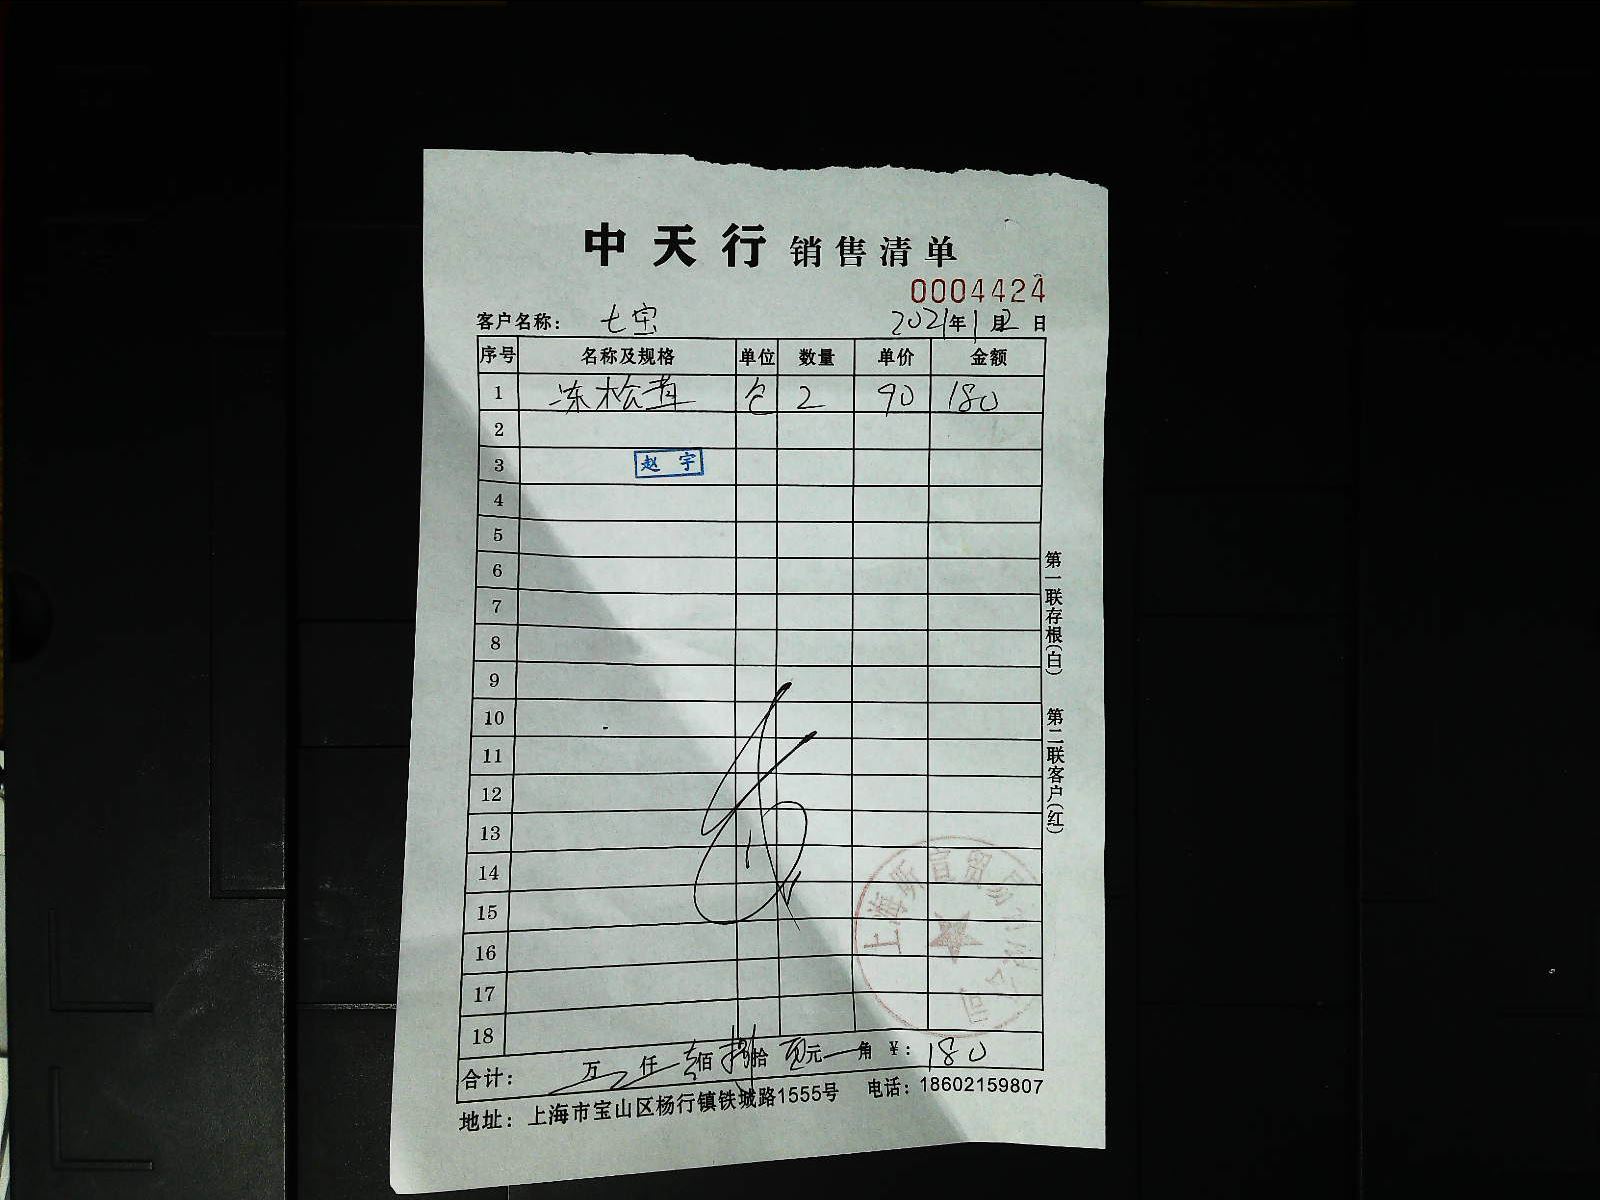 中天行 销售清单
0004424
客户名称： 七宝 2021年1月2日
序号 名称及规格 单位 数量 单价 金额
1 冻松茸 包 2 90 180
2
3 赵宇
4
5
6
7
8
9
10
11
12
13
14
15
16
17
18
合计： 万 仟 壹佰 捌拾 元 角 ¥： 180
地址： 上海市宝山区杨行镇铁城路1555号 电话：18602159807
第一联存根(白) 第二联客户(红)
上海 言贸易有限公司